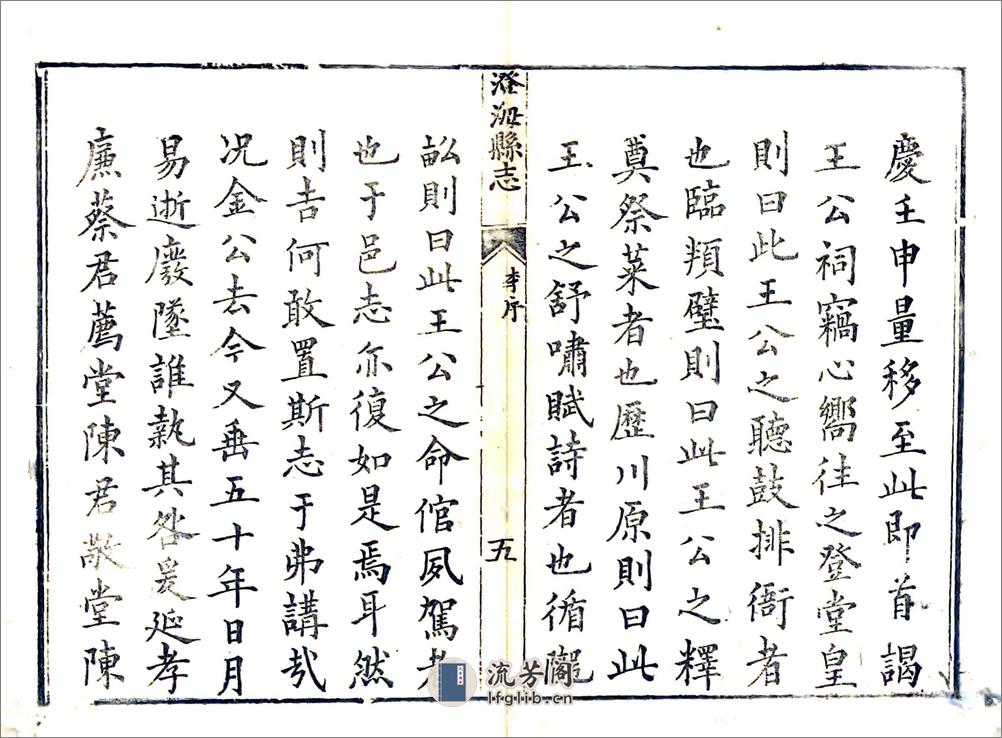 慶壬申量移至此即首謁
王公祠竊心嚮往之登堂皇
則曰此王公之聽鼓排衙者
也臨頖璧則曰此王公之釋
奠祭菜者也歷川原則曰此
王公之舒嘯賦詩者也循隴
澄海縣志
李序
五
畝則曰此王公之命倌夙駕者
也于邑志亦復如是焉耳然
則吉何敢置斯志于弗講哉
况金公去今又垂五十年日月
易逝廢墜誰執其咎爰延孝
廉蔡君薦堂陳君敬堂陳
流芳閣
lfglib.cn